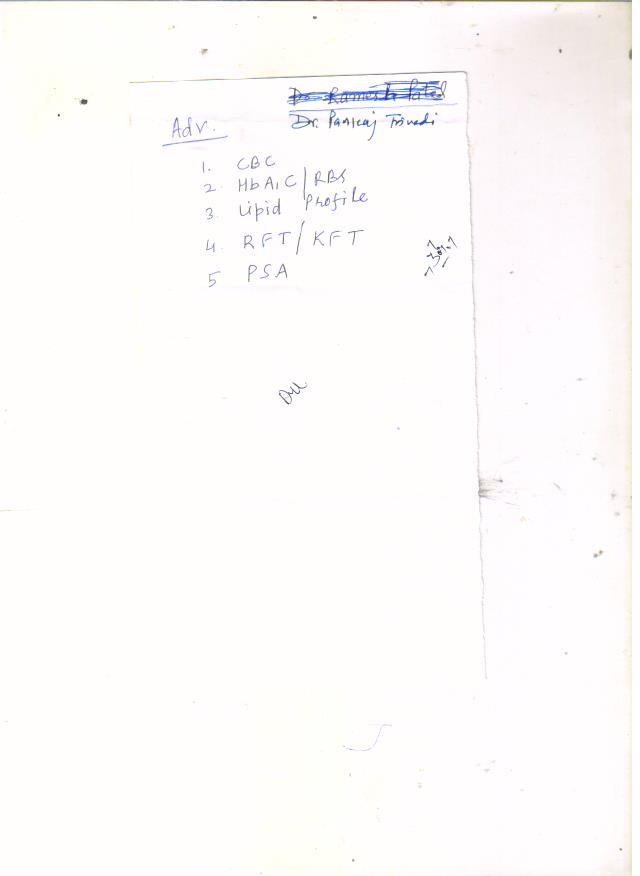 Dr. Ramesh Patel
Dr. Pankaj Trivedi
Adv.
1. CBC
2. HbA1C / RBS
3. Lipid Profile
4. RFT / KFT
5 PSA